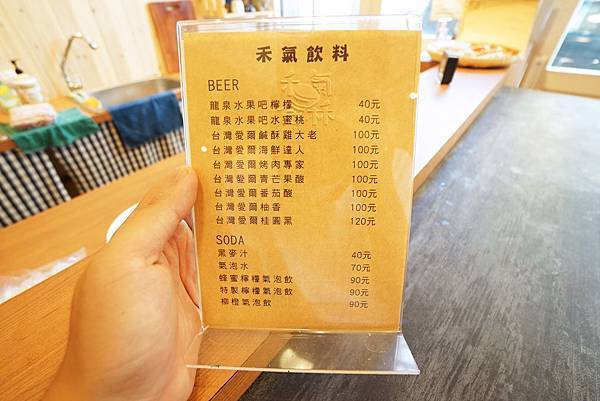 禾氣飲料
BEER
龍泉水果吧檸檬 40元
龍泉水果吧水蜜桃 40元
台灣愛爾鹹酥雞大老 100元
台灣愛爾海鮮達人 100元
台灣愛爾烤肉專家 100元
台灣愛爾青芒果酸 100元
台灣愛爾番茄酸 100元
台灣愛爾柚香 100元
台灣愛爾桂圓黑 120元
SODA
黑麥汁 40元
氣泡水 70元
蜂蜜檸檬氣泡飲 90元
特製檸檬氣泡飲 90元
柳橙氣泡飲 90元